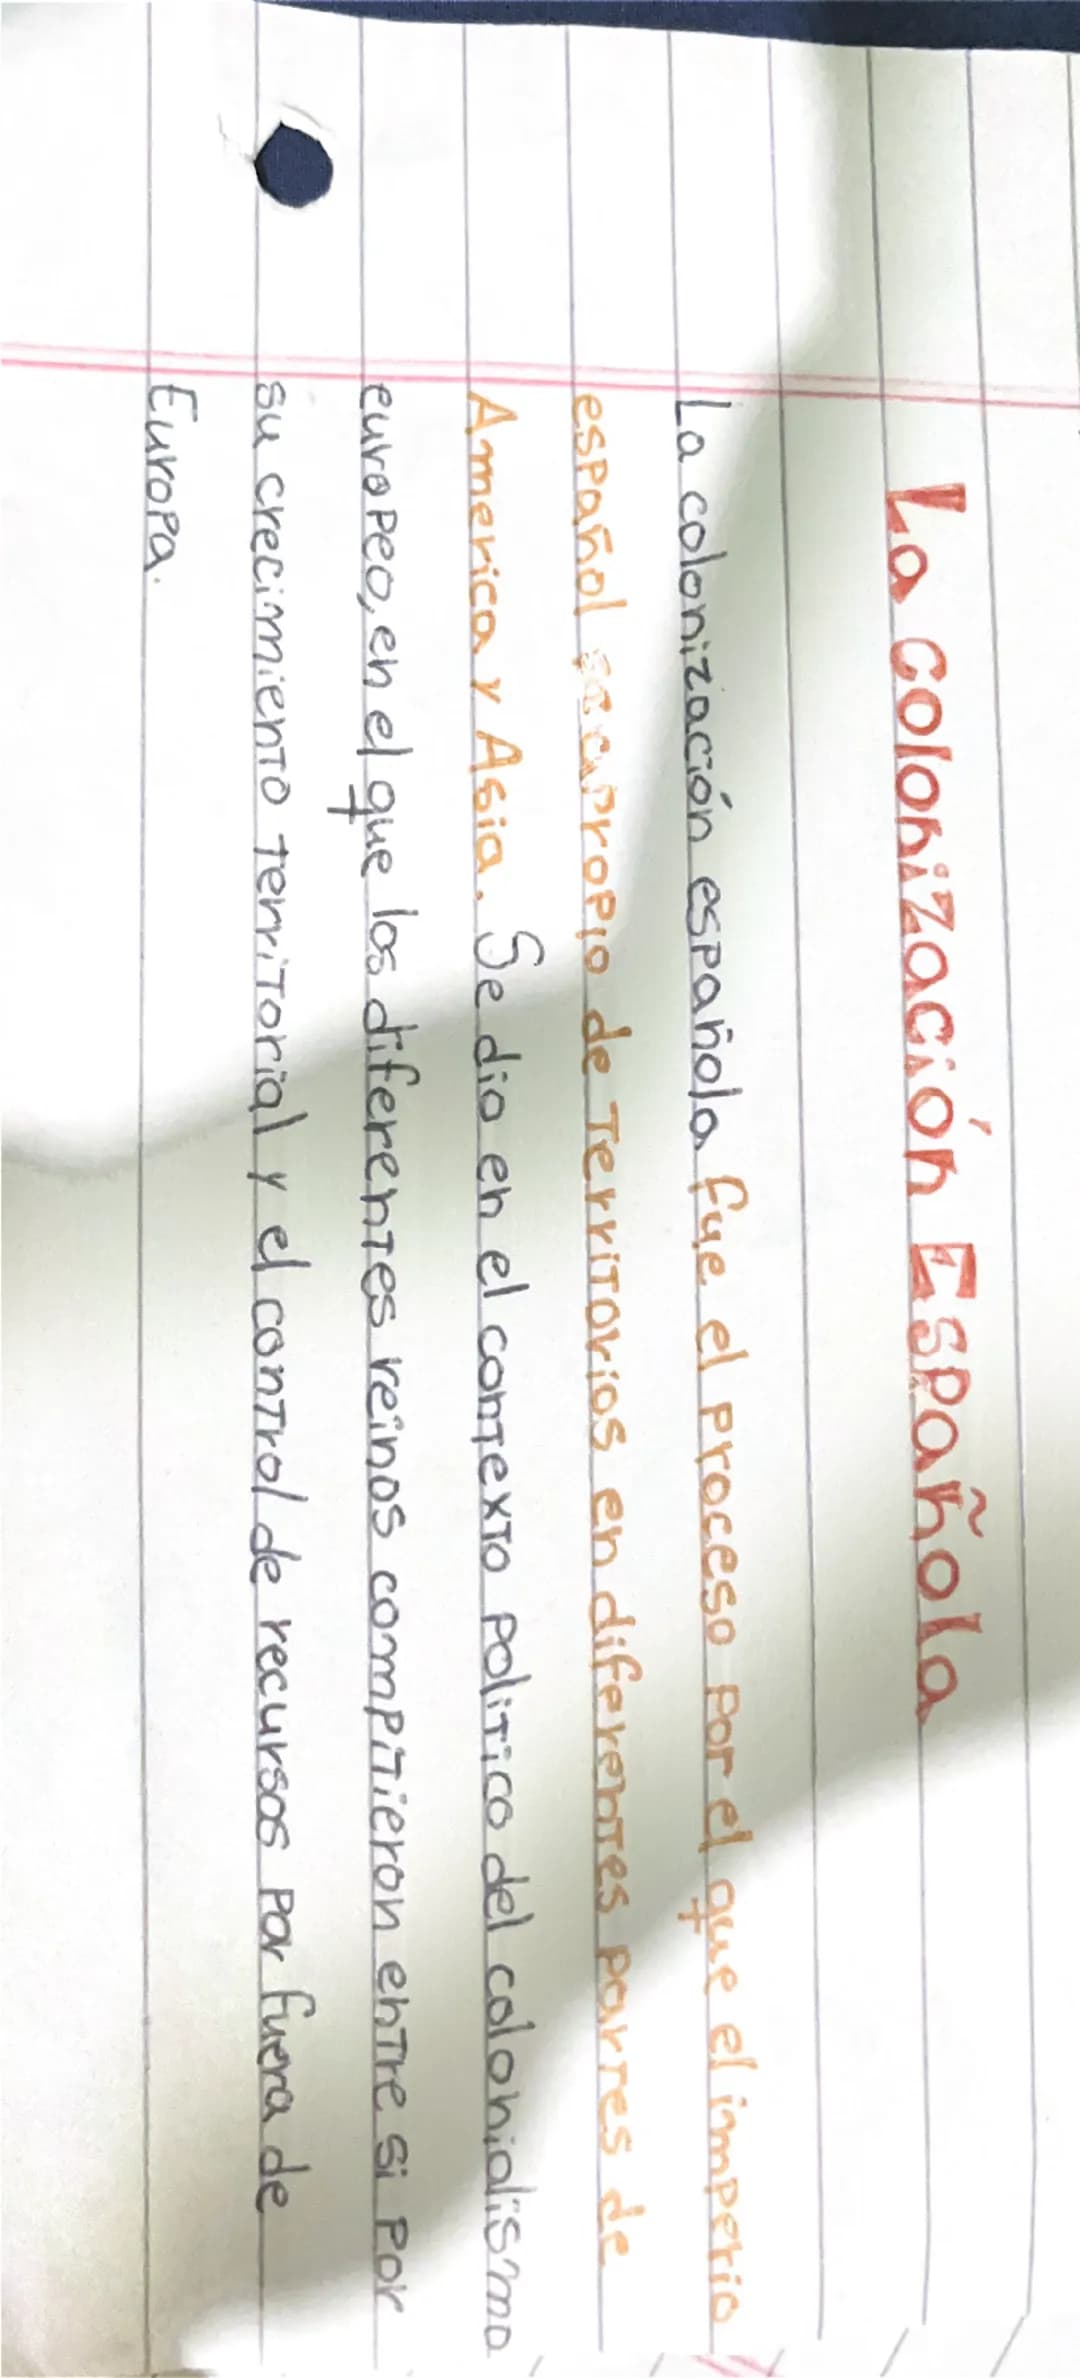 La colonización Española
La colonización española fue el proceso por el que el imperio
español se apropio de territorios en diferentes partes de
America y Asia. Se dio en el contexto politico del colonialismo
europeo, en el que los diferentes reinos compitieron entre si por
su crecimiento territorial y el control de recursos por fuera de
Europa.